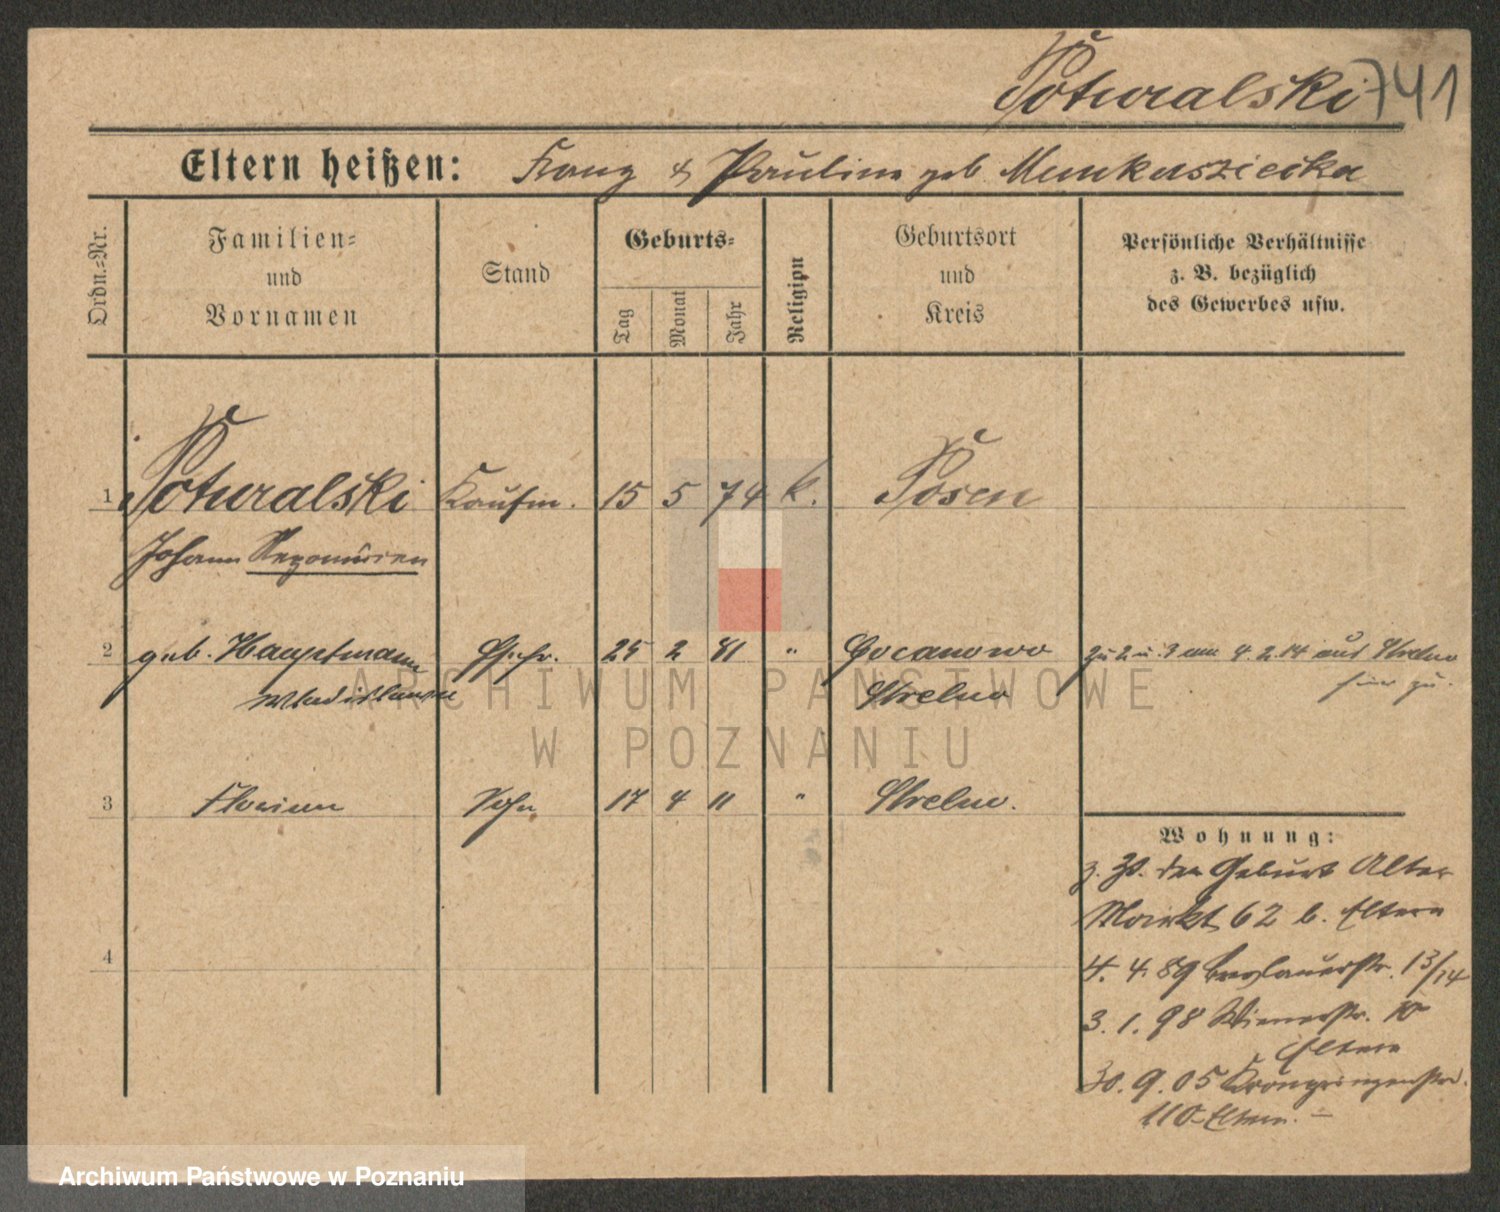 Poturalski 741
Eltern heißen: Franz & Pauline geb Munkuszieska
Ordn.-Nr.
Familien- und Vornamen
Stand
Geburts-
Tag Monat Jahr
Religion
Geburtsort und Kreis
Persönliche Verhältnisse z. B. bezüglich des Gewerbes usw.
1 Poturalski Kaufm. 15 5 74 k. Posen
Johann Nepomucen
2 geb. Hauptmann Ehefr. 25 2 81 " Gocanowo zu 2 u. 3 am 4.2.14 aus Strelno
Wladislawa Strelno hier zu.
3 Florian Sohn 17 4 11 " Strelno.
Wohnung:
z. Zt. der Geburt Alter
Markt 62 b. Eltern
4
4. 4. 89 Breslauerstr. 13/14
3. 1. 98 Wienerstr. 10
Eltern
30. 9. 05 Kronprinzenstr.
110 Eltern. –
ARCHIWUM PAŃSTWOWE
W POZNANIU
Archiwum Państwowe w Poznaniu